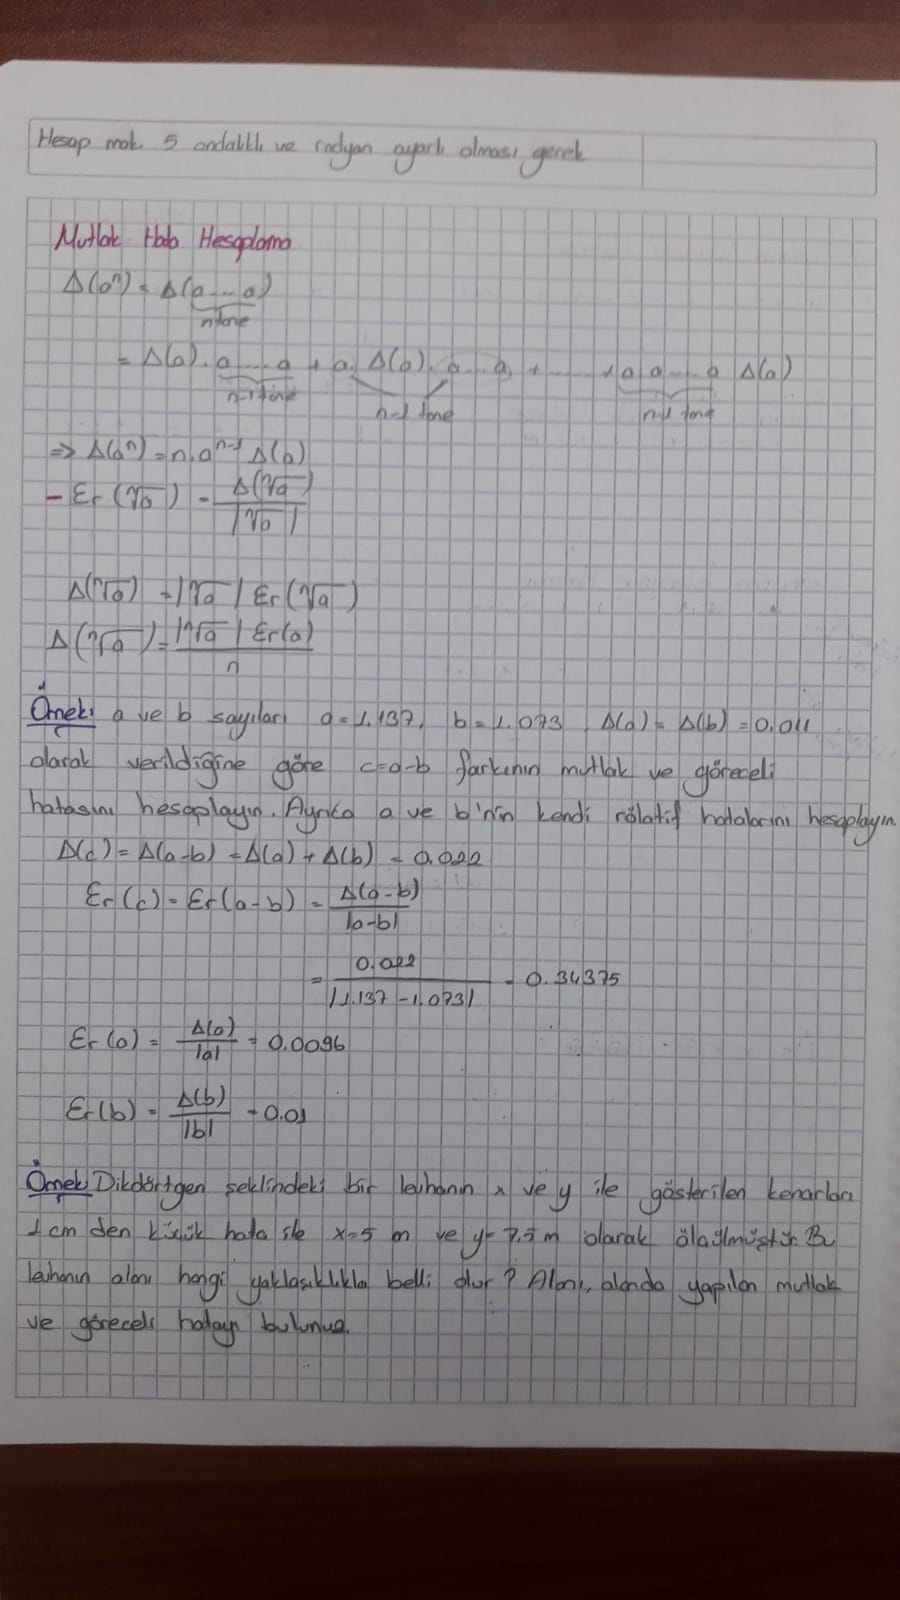 Hesap mak. 5 ondalıklı ve radyan ayarlı olması gerek
Mutlak Hata Hesaplama
Δ(aⁿ) = Δ(a....a)
n tane
= Δ(a).a....a + a.Δ(a).a...a + ...... + a.a....a Δ(a)
n-1 tane n-1 tane n-1 tane
=> Δ(aⁿ) = n.aⁿ⁻¹ Δ(a)
- Er(ⁿ√a) = Δ(ⁿ√a) / |ⁿ√a|
Δ(ⁿ√a) = |ⁿ√a| Er(ⁿ√a)
Δ(ⁿ√a) = |ⁿ√a| Er(a) / n
Örnek: a ve b sayıları a=1.137, b=1.073, Δ(a)=Δ(b)=0.011
olarak verildiğine göre c=a-b farkının mutlak ve göreceli
hatasını hesaplayın. Ayrıca a ve b'nin kendi rölatif hatalarını hesaplayın.
Δ(c) = Δ(a-b) = Δ(a) + Δ(b) = 0.022
Er(c) = Er(a-b) = Δ(a-b) / |a-b|
= 0.022 / |1.137-1.073| = 0.34375
Er(a) = Δ(a) / |a| = 0.0096
Er(b) = Δ(b) / |b| = 0.01
Örnek: Dikdörtgen şeklindeki bir levhanın x ve y ile gösterilen kenarları
1 cm den küçük hata ile x=5 m ve y=7.5 m olarak ölçülmüştür. Bu
levhanın alanı hangi yaklaşıklıkla belli olur? Alanı, alanda yapılan mutlak
ve göreceli hatayı bulunuz.